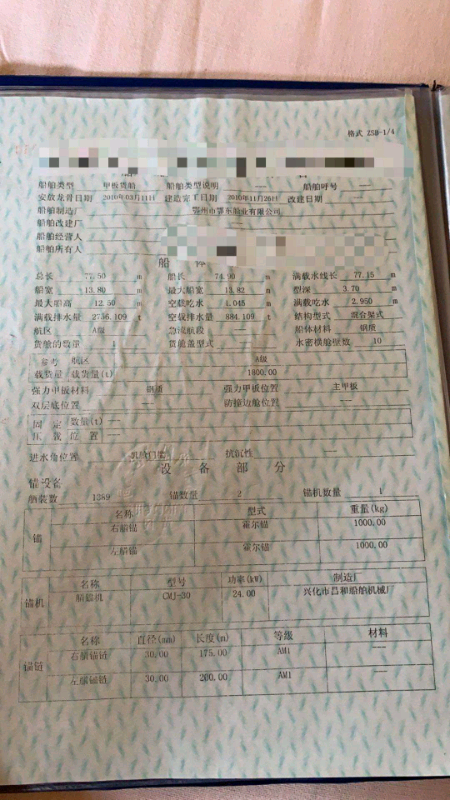 格式 ZSB-1/4
船舶类型 甲板货船 船舶类型说明 — 船舶呼号 —
安放龙骨日期 2010年03月11日 建造完工日期 2010年11月26日 改建日期 —
船舶制造厂 鄂州市鄂东船业有限公司
船舶改建厂 —
船舶经营人
船舶所有人
船 体
总长 77.50 m 船长 74.90 m 满载水线长 77.15 m
船宽 13.80 m 最大船宽 13.82 m 型深 3.70 m
最大船高 12.50 m 空载吃水 1.045 m 满载吃水 2.950 m
满载排水量 2756.109 t 空载排水量 884.109 t 结构型式 混合架式
航区 A级 急流航段 — 船体材料 钢质
货舱的数量 — 货舱盖型式 — 水密横舱壁数 10
参考 航区 A级
载货量 载货量(t) 1800.00
强力甲板材料 钢质 强力甲板位置 主甲板
双层底位置 — 防撞边舱位置 —
固定 数量(t) —
压载 位置 —
进水角位置 机舱门 抗沉性 —
设 备 部 分
锚设备
舾装数 1389 锚数量 2 锚机数量 1
锚 名称 型式 重量(kg)
右艏锚 霍尔锚 1000.00
左艏锚 霍尔锚 1000.00
锚机 名称 型号 功率(kW) 制造厂
艏锚机 CMJ-30 24.00 兴化市昌和船舶机械厂
锚链 名称 直径(mm) 长度(m) 等级 材料
右艏锚链 30.00 175.00 AM1 —
左艏锚链 30.00 200.00 AM1 —